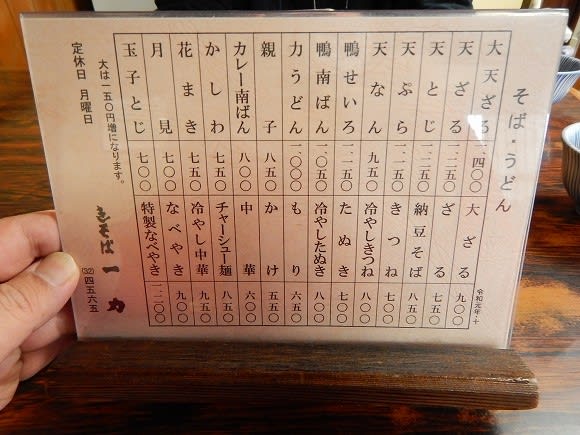 そば・うどん
大天ざる 一四〇〇
天ざる 一二五〇
天とじ 一二五〇
天ぷら 一二五〇
天なん 九五〇
鴨せいろ 一二五〇
鴨南ばん 一〇五〇
力うどん 一〇〇〇
親子 八五〇
カレー南ばん 八〇〇
かしわ 七五〇
花まき 七五〇
月見 七〇〇
玉子とじ 七〇〇
大ざる 九〇〇
ざる 七五〇
納豆そば 八五〇
きつね 七〇〇
冷やしきつね 八〇〇
たぬき 七〇〇
冷やしたぬき 八〇〇
もり 六五〇
かけ 五五〇
中華 六〇〇
チャーシュー麺 八五〇
冷やし中華 九五〇
なべやき 九〇〇
特製なべやき 一二〇〇
令和元年・十
大は一五〇円増になります。
定休日 月曜日
生そば 一力
(32)四五六五